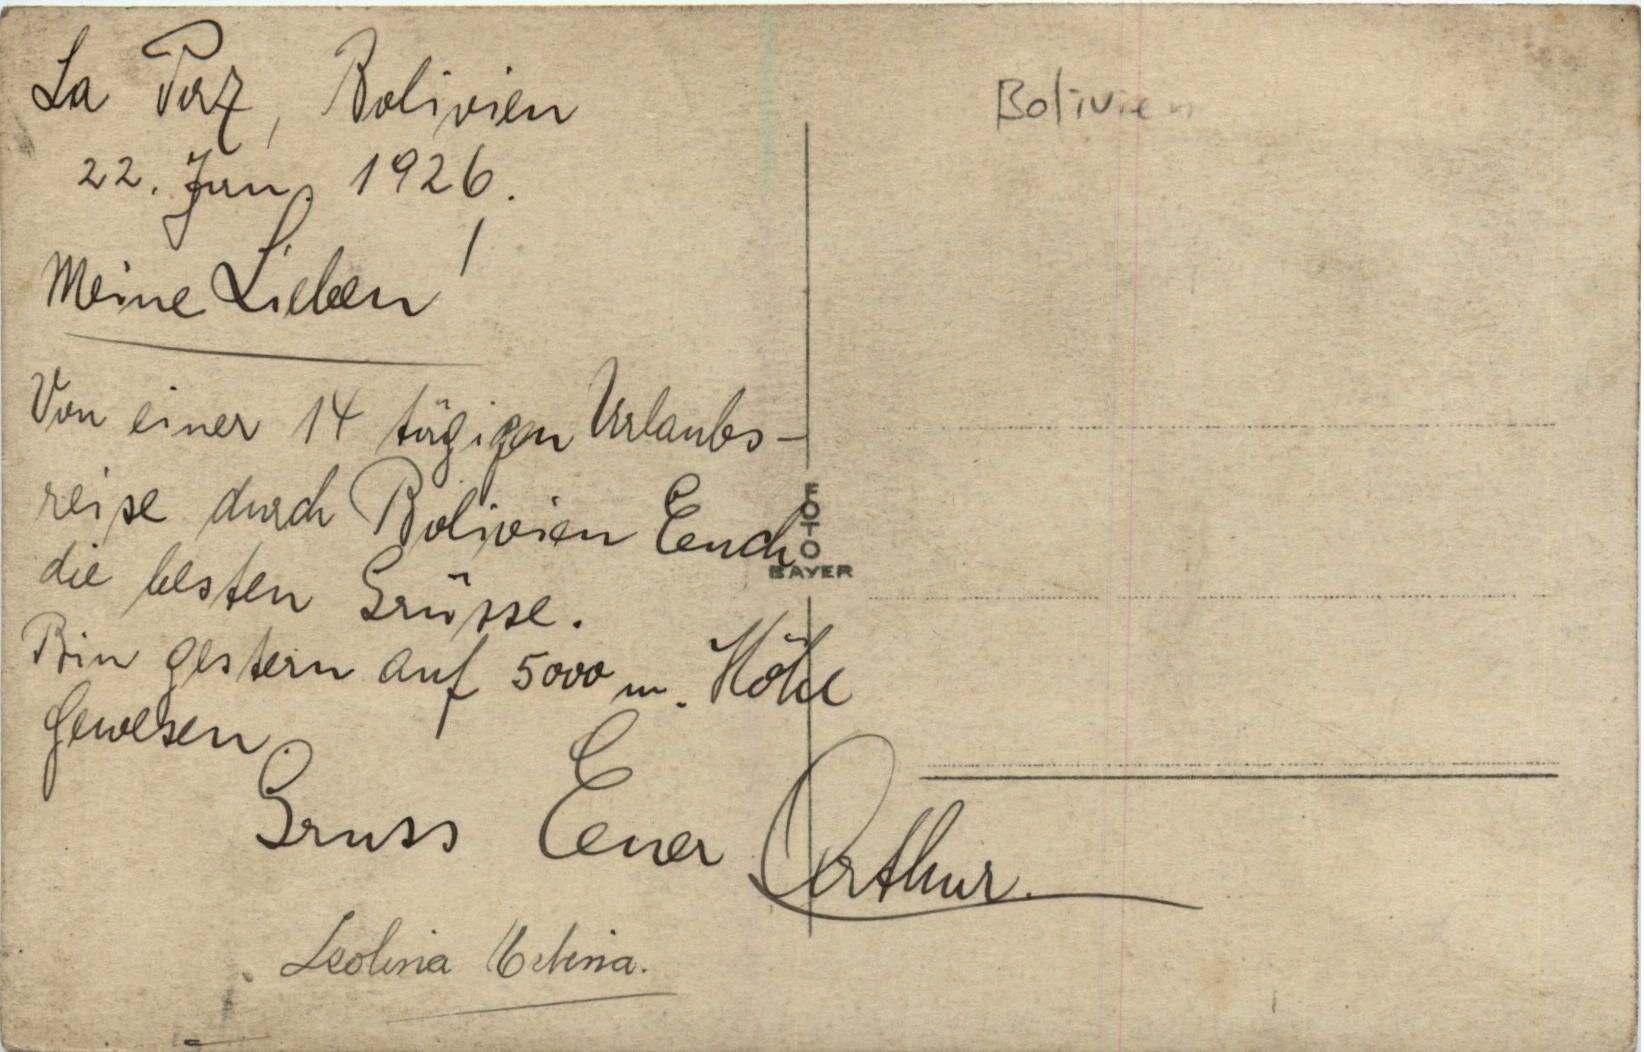 La Paz, Bolivien
22. Jan. 1926.
Meine Lieben!
Von einer 14 tägigen Urlaubs-
reise durch Bolivien Euch
die besten Grüsse.
Bin gestern auf 5000 m. Höhe
gewesen.
Gruss Euer Arthur.
Bolivien
FOTO
BAYER